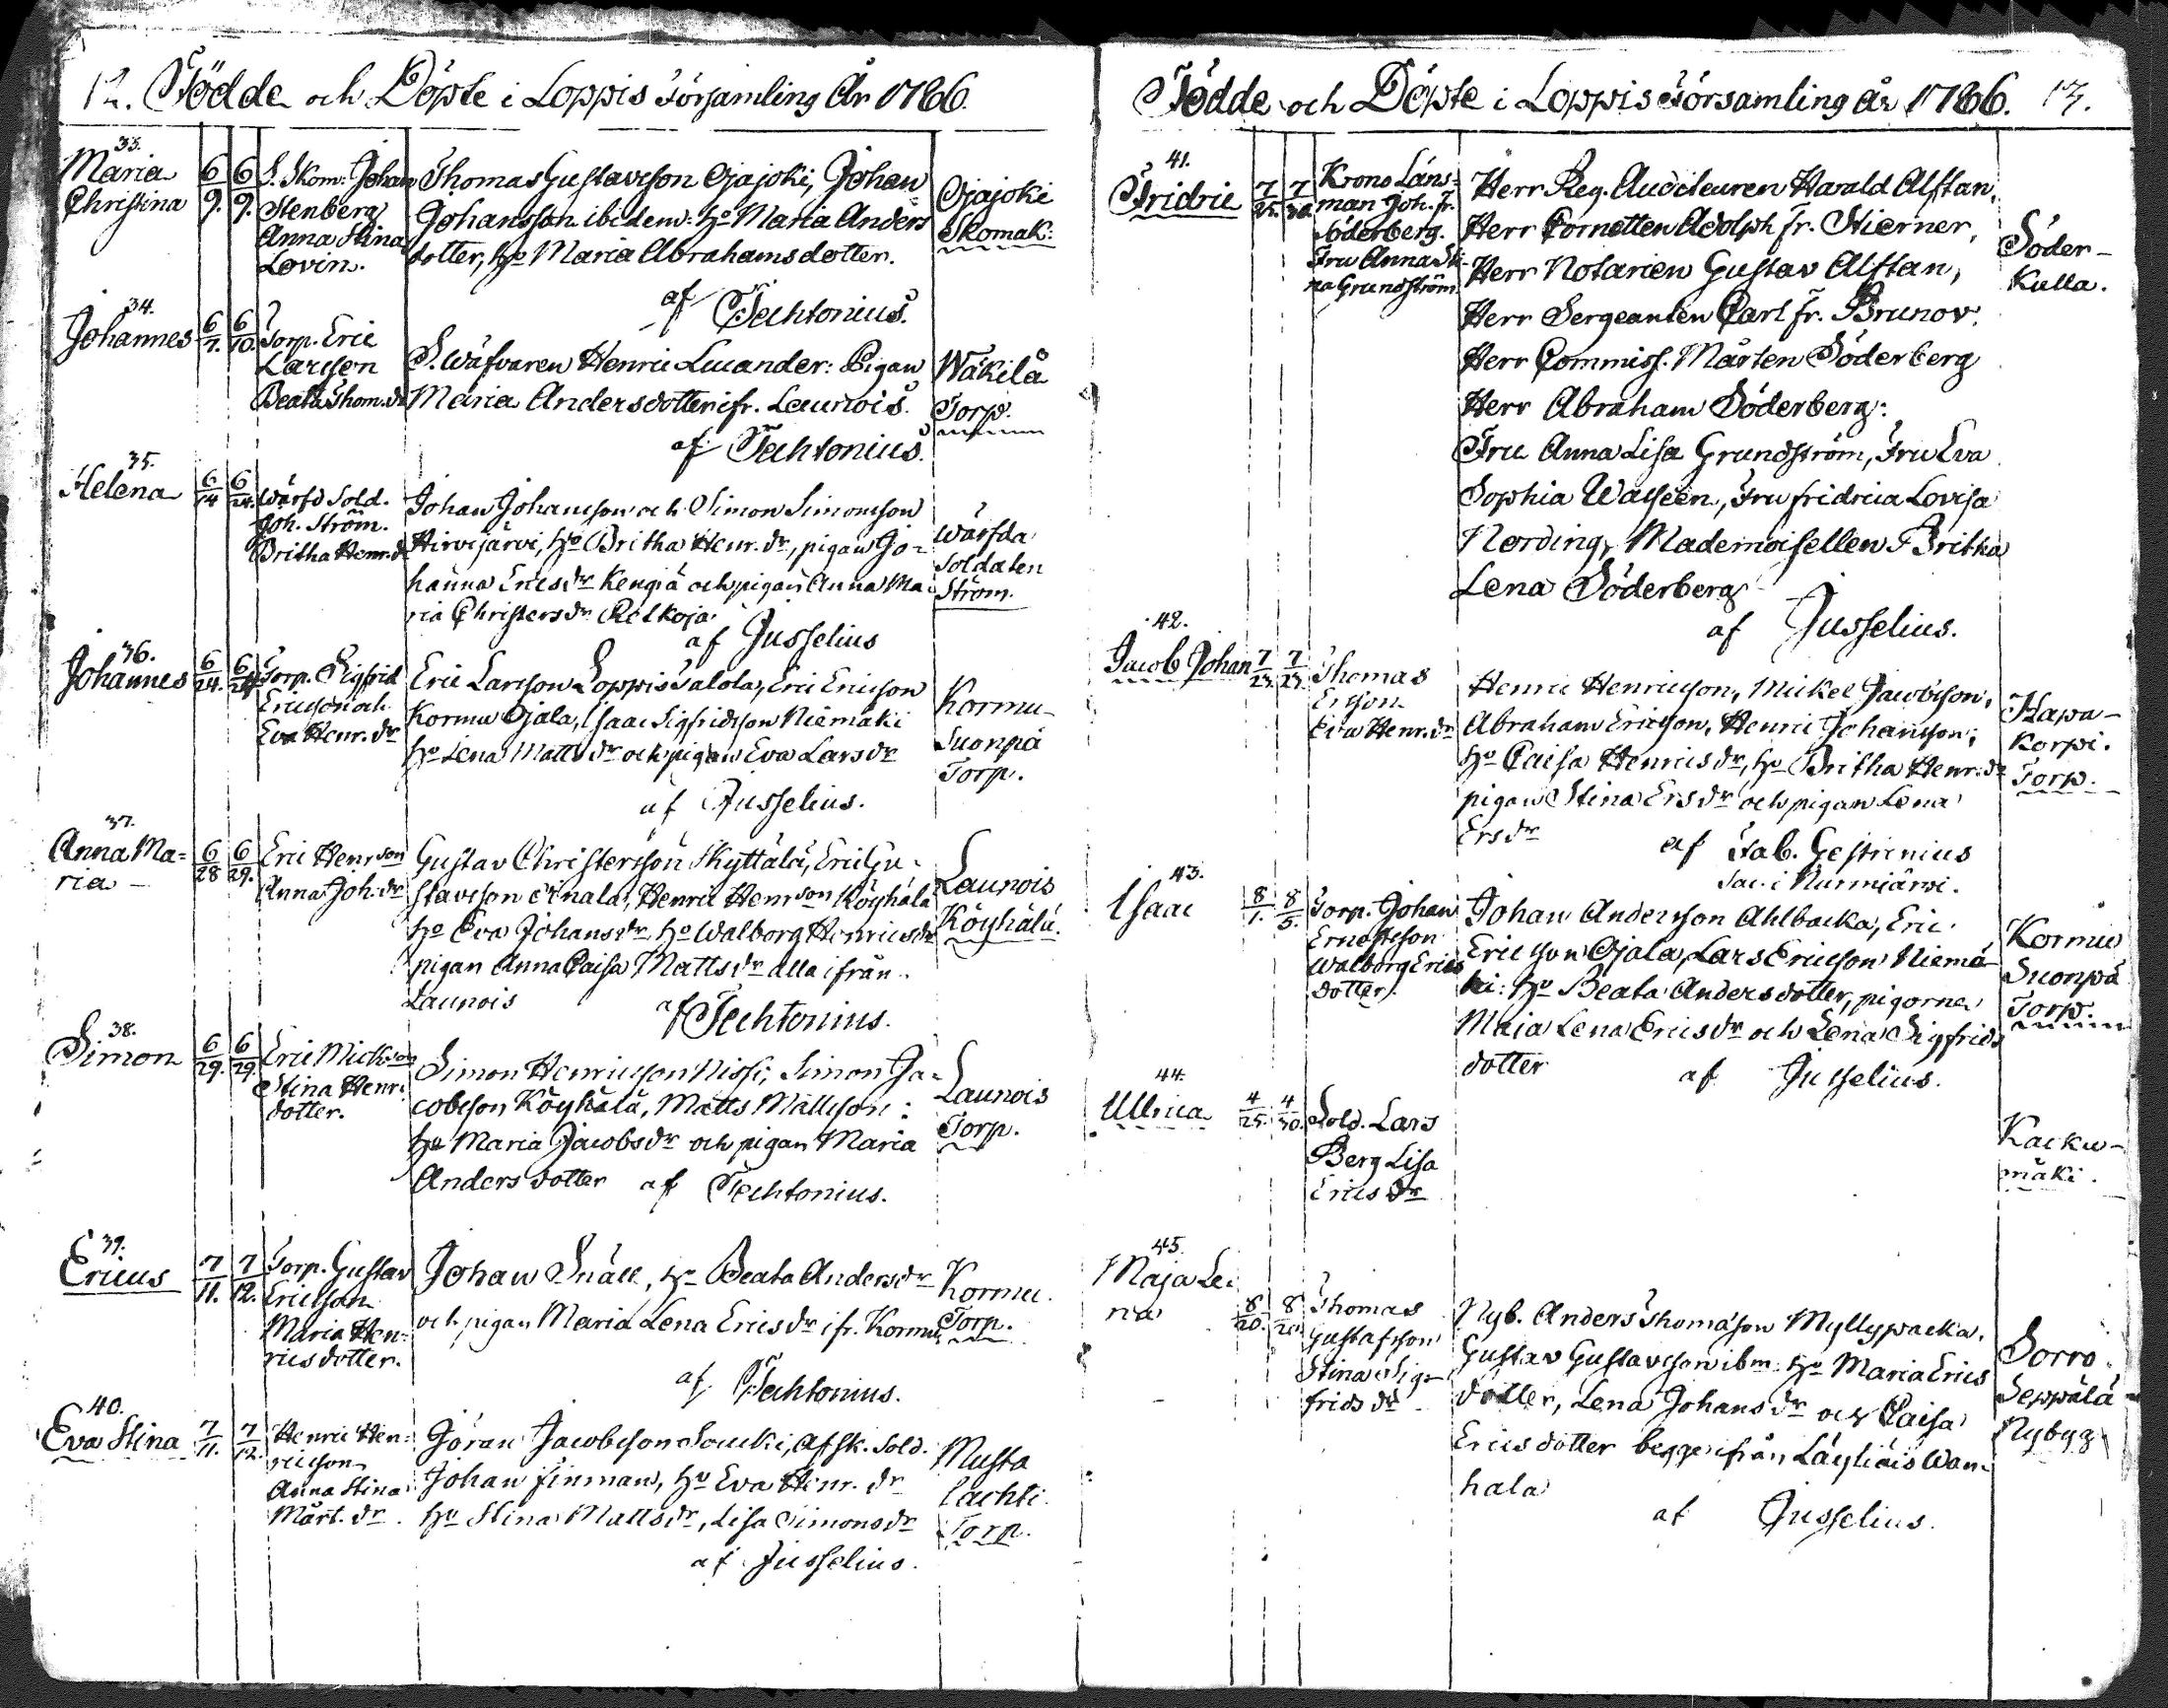 12. Födde och Döpte i Loppis Församling År 1786.
33.
Maria
Christina
6/9. 6/9.
S. Skom: Johan
Stenberg
Anna Stina
Lovin.
Thomas Gustavsson Ojajoki, Johan
Johansson ibidem: Ho Maria Anders
dotter, Ho Maria Abrahamsdotter.
af Techtonius.
Ojajoki
Skomak:
34.
Johannes
6/7. 6/10.
Torp. Eric
Larsson
Beata Thom. dr
S. wäfvaren Henric Lucander: Pigan
Maria Andersdotter ifr. Launois.
af Techtonius.
Wäkilä
Torp.
35.
Helena
6/14 6/24.
Wärfd Sold.
Joh. Ström.
Britha Henr. dr
Johan Johansson och Simon Simonsson
Hirvijärvi, Ho Britha Henr. dr, pigan Jo-
hanna Ericsdr Kengiä och pigan Anna Ma-
ria Christersdr Pelkoja
af Jusselius
Wärfda
Soldaten
Ström.
36.
Johannes
6/24. 6/24
Torp. Sigfrid
Ericsson och
Eva Henr. dr
Eric Larsson Loppis Salola, Eric Ericsson
Kormu Ojala, Isaac Sigfridsson Niemäki
Ho Lena Matts dr och pigan Eva Lars dr
af Jusselius.
Kormu-
Suonpä
Torp.
37.
Anna Ma=
ria
6/28 6/29.
Eric Henrson
Anna Joh. dr
Gustav Christersson Skyttälä, Eric Gu-
stavsson Annala, Henric Henrson Köyhälä
Ho Eva Johansdr, Ho Walborg Henricsdr
pigan Anna Caisa Mattsdr alla ifrån
Launois
af Techtonius.
Launois
Köyhälä.
38.
Simon
6/29. 6/29.
Eric Mickson
Stina Henr.
dotter.
Simon Henricsson Nissi, Simon Ja-
cobsson Köyhälä, Matts Mattsson:
Ho Maria Jacobsdr och pigan Maria
Andersdotter af Techtonius.
Launois
Torp.
39.
Ericus
7/11. 7/12.
Torp. Gustav
Ericsson
Maria Hen=
ricsdotter.
Johan Snäll, Ho Beata Andersdr
och pigan Maria Lena Ericsdr ifr. Kormu
af Techtonius.
Kormu.
Torp.
40.
Eva Stina
7/11. 7/12.
Henric Hen=
ricsson
Anna Stina
Märt. dr.
Göran Jacobsson Soucki, afsk. Sold.
Johan Finman, Ho Eva Henr. dr
Ho Stina Mattsdr, Lisa Simonsdr
af Jusselius.
Musta
lachti
Torp.
Födde och Döpte i Loppis Församling år 1786. 13.
41.
Fridric
7/25. 7/30.
Krono Läns=
man Joh. Fr.
Söderberg.
Fru Anna Sti-
na Grundström
Herr Reg. Auditeuren Harald Alftan,
Herr Cornetten Adolph Fr. Stierner,
Herr Notarien Gustav Alftan,
Herr Sergeanten Carl Fr. Brunov.
Herr Commiss. Mårten Söderberg
Herr Abraham Söderberg:
Fru Anna Lisa Grundström, Fru Eva
Sophia Walleen, Fru Fridrica Lovisa
Nording, Mademoisellen Britha
Lena Söderberg
af Jusselius.
Söder-
Kulla.
42.
Jacob Johan
7/23. 7/23.
Thomas
Ersson
Eva Henr. dr
Henric Henricsson, Mickel Jacobsson,
Abraham Ericsson, Henric Johansson,
Ho Caisa Henricsdr, Ho Britha Henr. dr
pigan Stina Ersdr och pigan Lena
Ersdr
af Fab. Gestrinius
Sac. i Nurmiärvi.
Hawa-
Korpi.
Torp.
43.
Isaac
8/1. 8/5.
Torp. Johan
Ernstsson
Walborg Erics
dotter.
Johan Andersson Ahlbacka, Eric
Ericsson Ojala, Lars Ericsson Niemä-
ki: Ho Beata Andersdotter, pigorna
Maja Lena Ericsdr och Lena Sigfrids
dotter
af Jusselius.
Kormu
Suonpä
Torp.
44.
Ulrica
4/25. 4/30.
Sold. Lars
Berg Lisa
Ericsdr
Kacku-
mäki.
45.
Maja Le-
na
8/20. 8/20
Thomas
Gustafsson
Stina Sig-
frids dr
Nyb. Anders Thomasson Myllypacka,
Gustav Gustavsson ibm: Ho Maria Erics
dotter, Lena Johansdr och Caisa
Ericsdotter begge ifrån Läyliäis Wan-
hala
af Jusselius.
Sorro
Seppälä
Nybyg